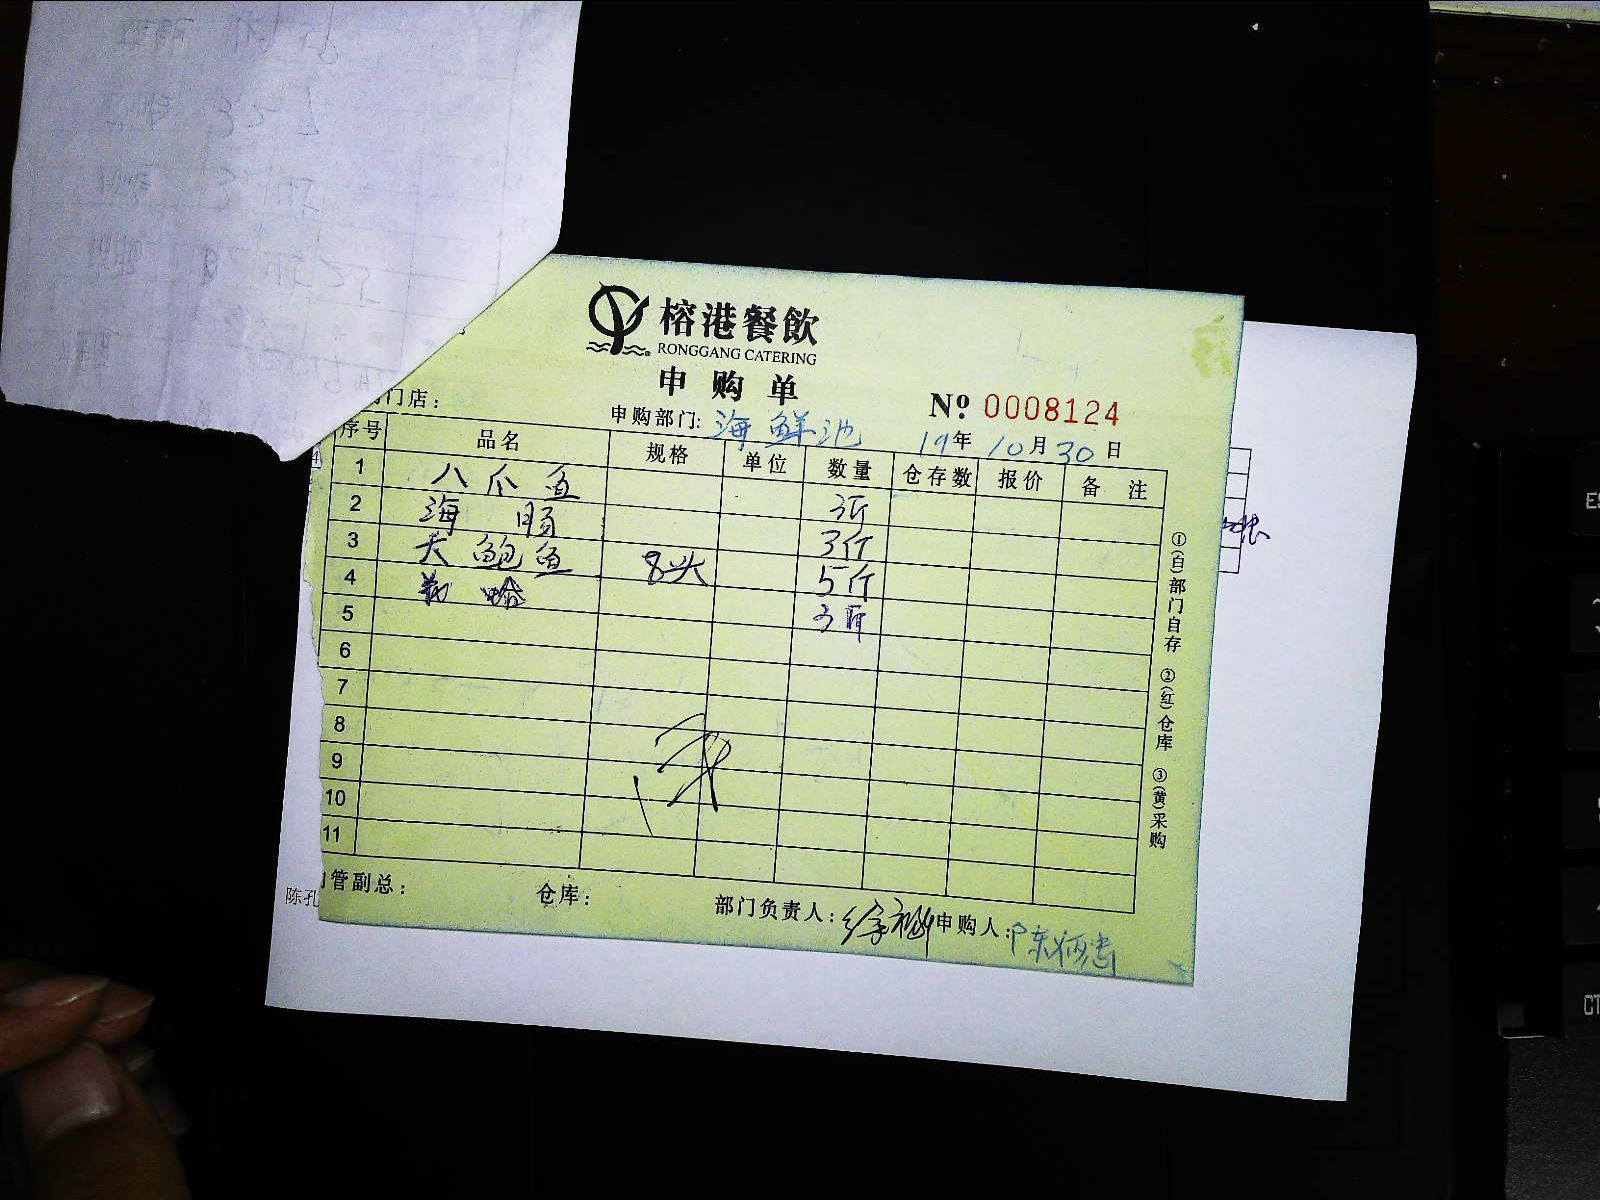 榕港餐飲
RONGGANG CATERING
申购单
门店： 申购部门: 海鲜池 19年10月30日 Nº 0008124
序号 品名 规格 单位 数量 仓存数 报价 备注
1 八爪鱼 3斤
2 海肠 3斤
3 大鲍鱼 8头 5斤
4 3斤
5
6
7
8
9
10
11
管副总： 仓库： 部门负责人： 申购人：
①(白)部门自存 ②(红)仓库 ③(黄)采购
陈孔